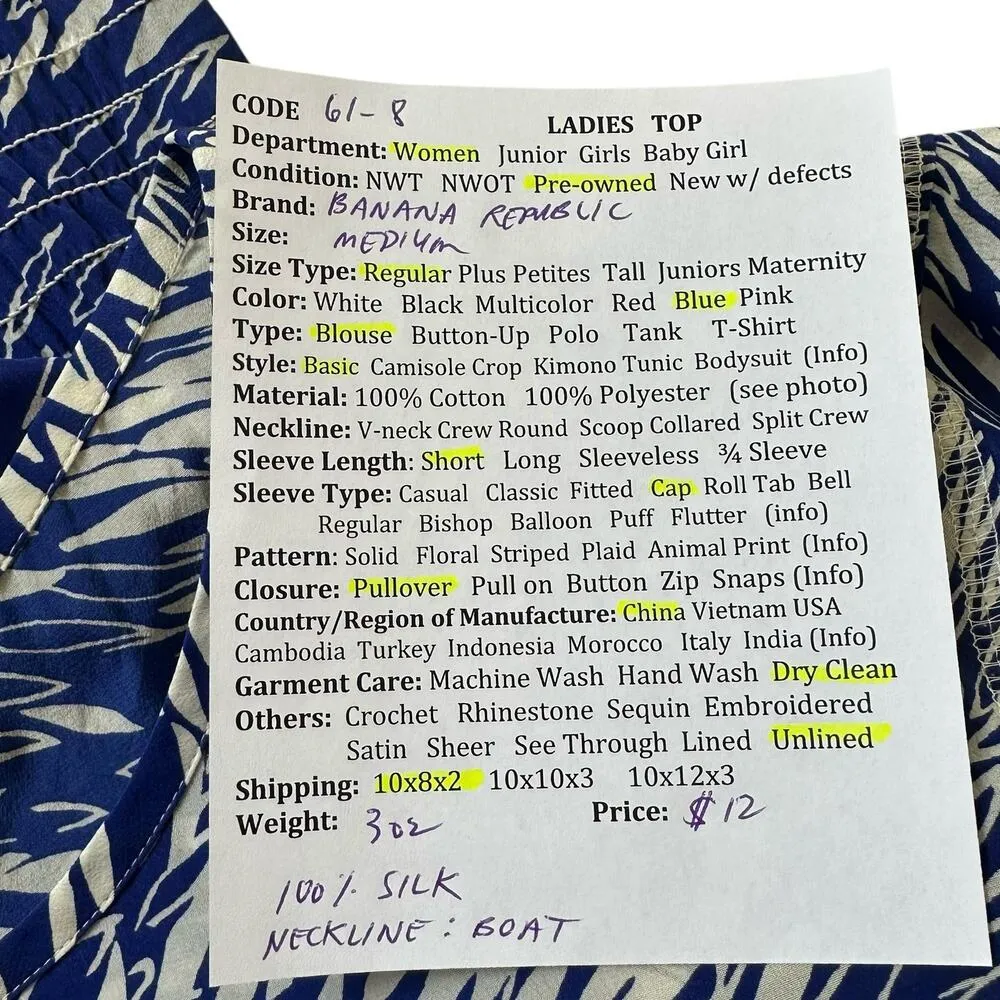 CODE 61-8
LADIES TOP
Department: Women Junior Girls Baby Girl
Condition: NWT NWOT Pre-owned New w/ defects
Brand: BANANA REPUBLIC
Size: MEDIUM
Size Type: Regular Plus Petites Tall Juniors Maternity
Color: White Black Multicolor Red Blue Pink
Type: Blouse Button-Up Polo Tank T-Shirt
Style: Basic Camisole Crop Kimono Tunic Bodysuit (Info)
Material: 100% Cotton 100% Polyester (see photo)
Neckline: V-neck Crew Round Scoop Collared Split Crew
Sleeve Length: Short Long Sleeveless ¾ Sleeve
Sleeve Type: Casual Classic Fitted Cap Roll Tab Bell
Regular Bishop Balloon Puff Flutter (info)
Pattern: Solid Floral Striped Plaid Animal Print (Info)
Closure: Pullover Pull on Button Zip Snaps (Info)
Country/Region of Manufacture: China Vietnam USA
Cambodia Turkey Indonesia Morocco Italy India (Info)
Garment Care: Machine Wash Hand Wash Dry Clean
Others: Crochet Rhinestone Sequin Embroidered
Satin Sheer See Through Lined Unlined
Shipping: 10x8x2 10x10x3 10x12x3
Weight: 3oz Price: $12
100% SILK
NECKLINE: BOAT